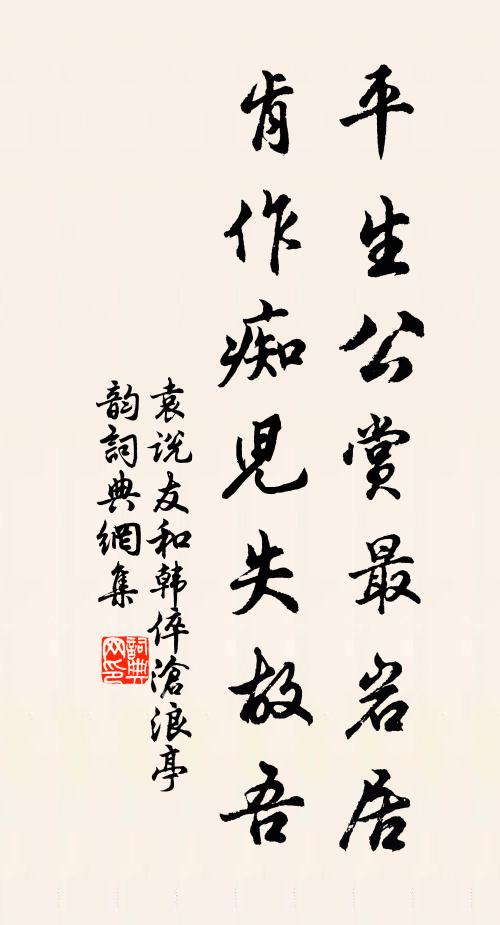 平生公赏最岩居
肯作痴児失故吾
袁说友和韩倅滄浪亭
韵詞典網集
詞典网印